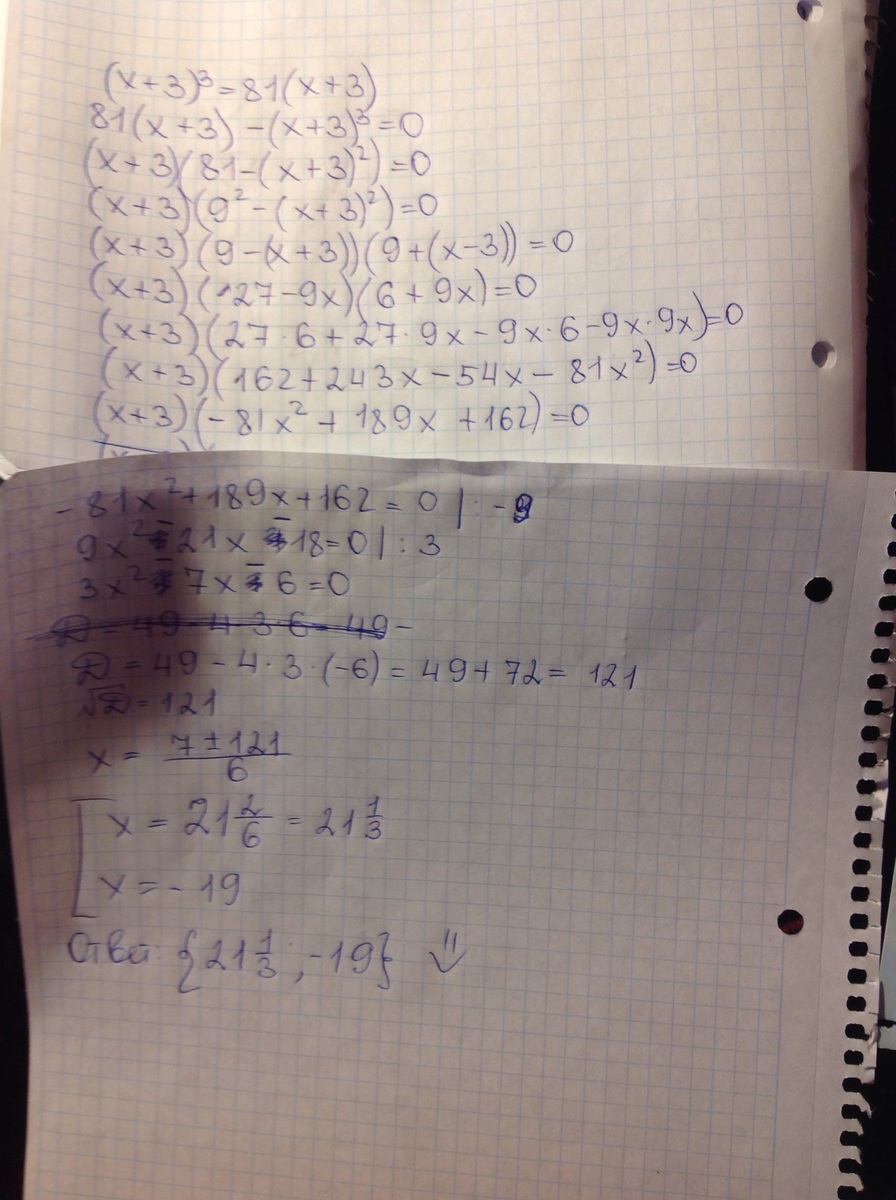 (x+3)³=81(x+3)
81(x+3)-(x+3)³=0
(x+3)(81-(x+3)²)=0
(x+3)(9²-(x+3)²)=0
(x+3)(9-(x+3))(9+(x-3))=0
(x+3)(27-9x)(6+9x)=0
(x+3)(27·6+27·9x-9x·6-9x·9x)=0
(x+3)(162+243x-54x-81x²)=0
(x+3)(-81x²+189x+162)=0
-81x²+189x+162=0 |:-9
9x²-21x-18=0 |:3
3x²-7x-6=0
D=49-4·3·6=49-
D=49-4·3·(-6)=49+72=121
√D=121
x=7±121/6
[x=21 2/6=21 1/3
x=-19
Ответ: {21 1/3; -19}